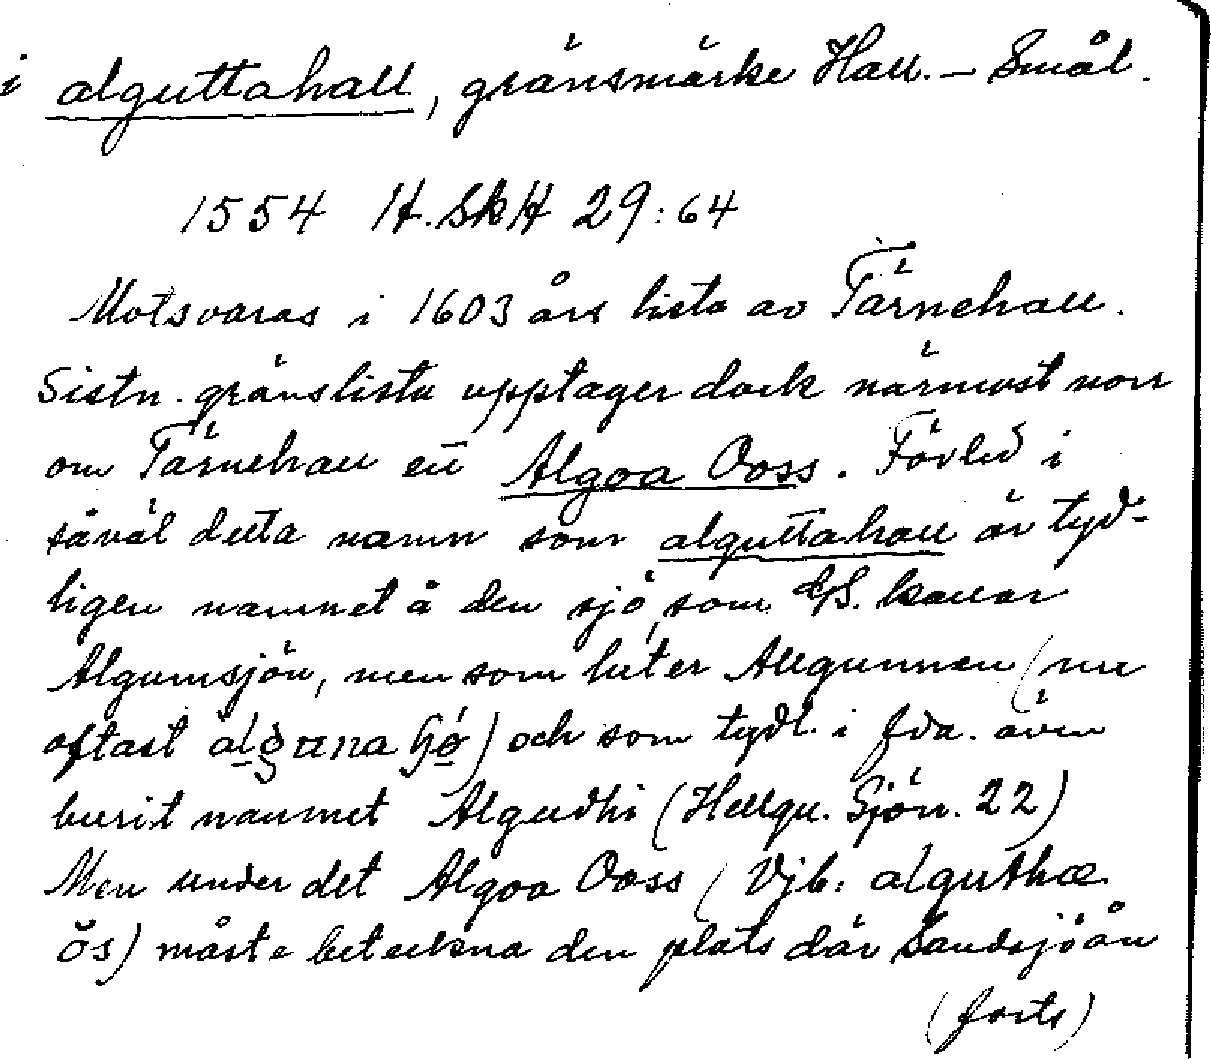 i alguttahall, gränsmärke Hall. – Smål.
1554 H. Sk H 29:64
Motsvaras i 1603 års lista av Tärnehall.
Sistn. gränslista upptager dock närmast norr
om Tärnehall en̄ Algoa Ooss. Förled i
såväl detta namn som alguttahall är tyd-
ligen namnet å den sjö, som kallar
Algumsjön, men som heter Allgunnen (nu
oftast ) och som tydl. i fda. även
burit namnet Algudhi (Hellqu. Sjön. 22)
Men under det Algoa Ooss (Vjb: alguthæ
ös) måste beteckna den plats där Sandsjöån
(forts)